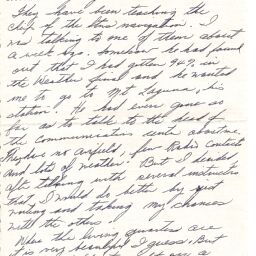 They have been teaching the
chief of the Navy navigation. I
was talking to one of them about
a week ago. Somehow he had found
out that I had gotten 94% in
the Weather final and he wanted
me to go to Mt Laguna, his
station. He had even gone as
far as to talk to the head of
the Communications center about me.
They have no airfield, few Radio Contacts
and lots of weather. But I decided,
after talking with several instructors
that I would do better by just
waiting and taking my chances
with the others.
Where the living quarters are
it is very beautiful I guess. But